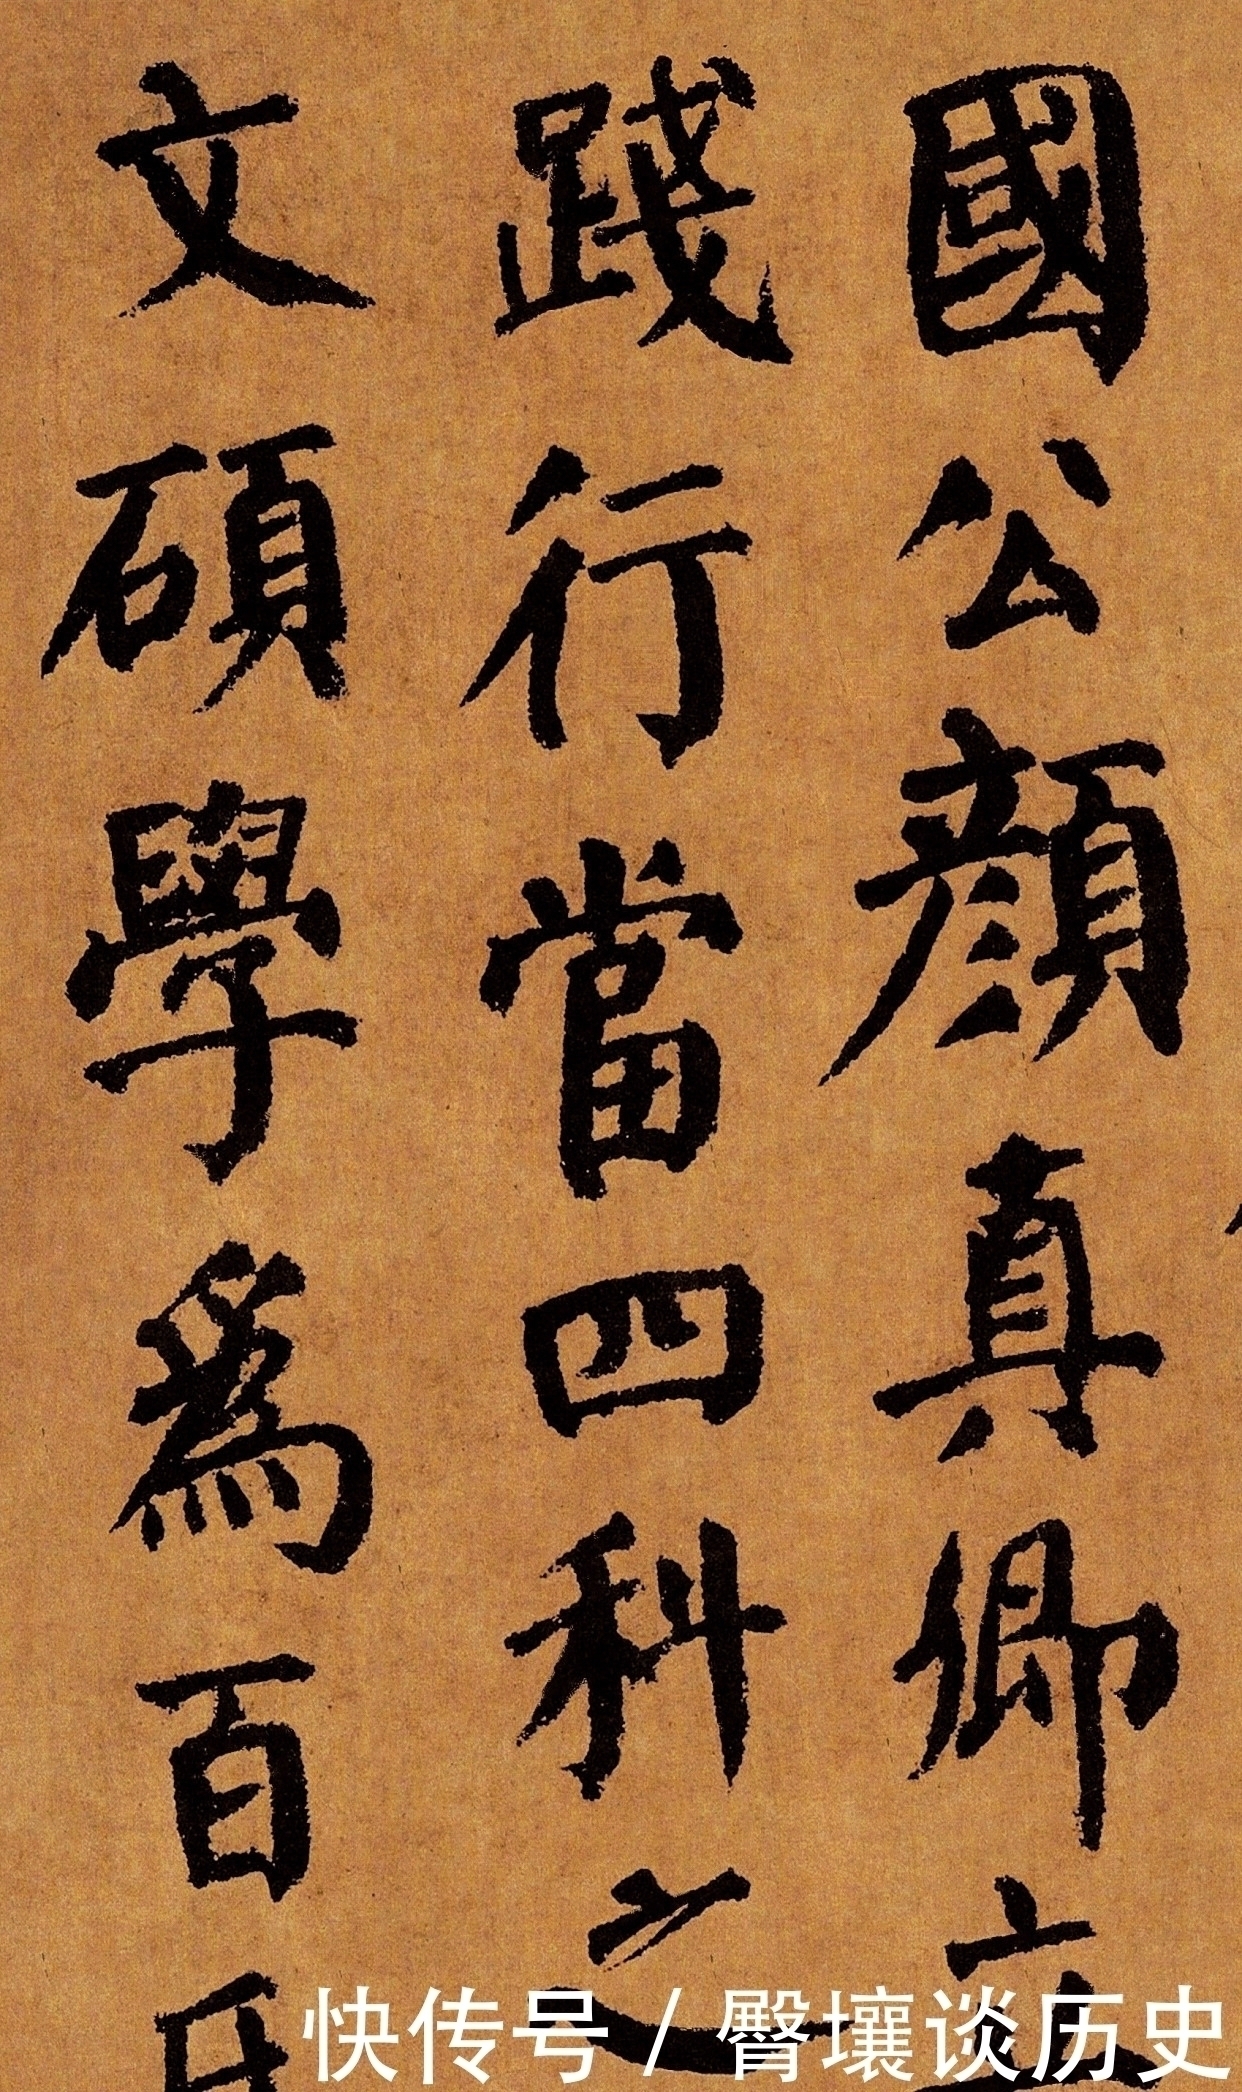 國公顏真卿立
踐行當四科之
文碩學爲百
快传号 / 臀壤谈历史